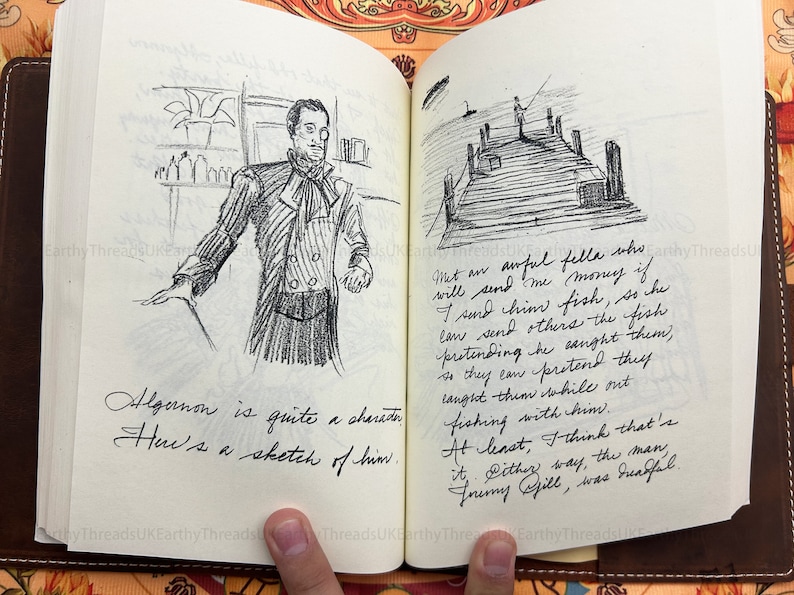 Algernon is quite a character.
Here's a sketch of him.
Met an awful fella who
will send me money if
I send him fish, so he
can send others the fish
pretending he caught them,
so they can pretend they
caught them while out
fishing with him.
At least, I think that's
it. Either way, the man,
Jeremy Gill, was dreadful.
EarthyThreadsUKEarthyThreadsUKEarthyThreadsUKEarthyThreadsUKEarthyThreadsUK
EarthyThreadsUKEarthyThreadsUKEarthyThreadsUKEarthyThreadsUKEarthyThreadsUK